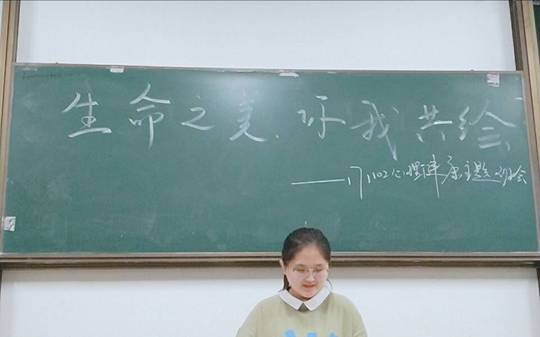 生命之美,你我共绘
——171102心理健康主题班会